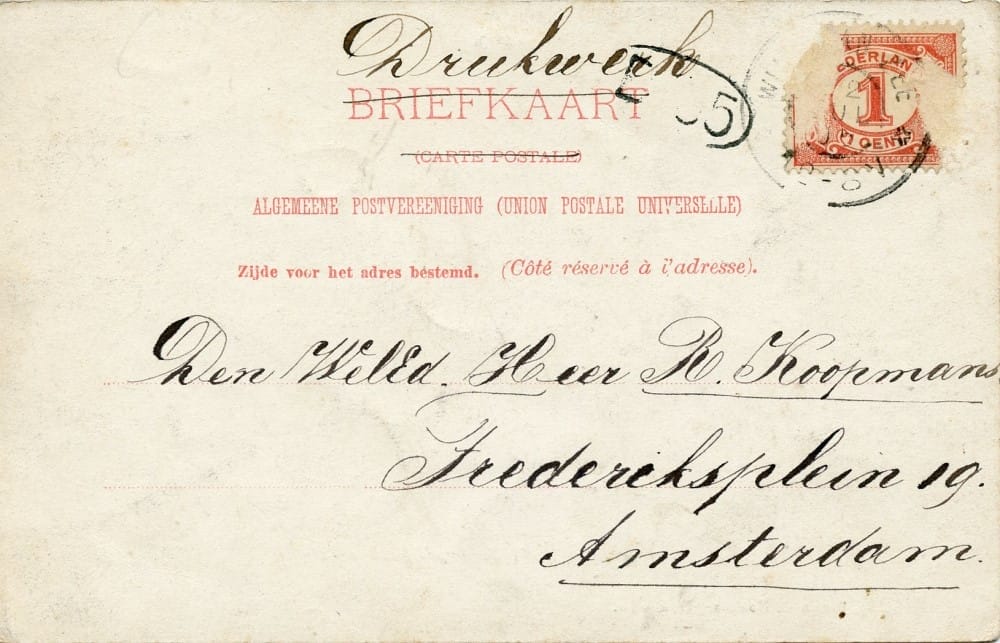 Drukwerk
BRIEFKAART
(CARTE POSTALE)
ALGEMEENE POSTVEREENIGING (UNION POSTALE UNIVERSELLE)
Zijde voor het adres bestemd. (Côté réservé à l'adresse).
DERLAN
1
1 CENT
5
Den WelEd. Heer R. Koopmans
Frederiksplein 19.
Amsterdam.